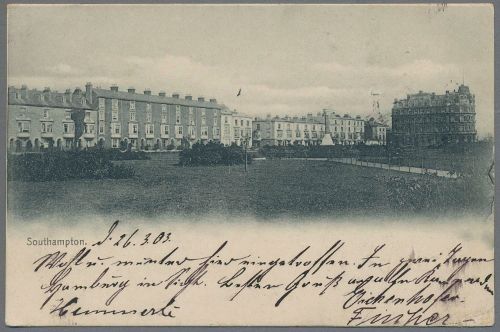 Southampton.
d. 26.3.03.
Wohl u. munter hier eingetroffen. In zwei Tagen
Hamburg in Sicht. Besten Gruß an alle
Hemmerle
Fischer